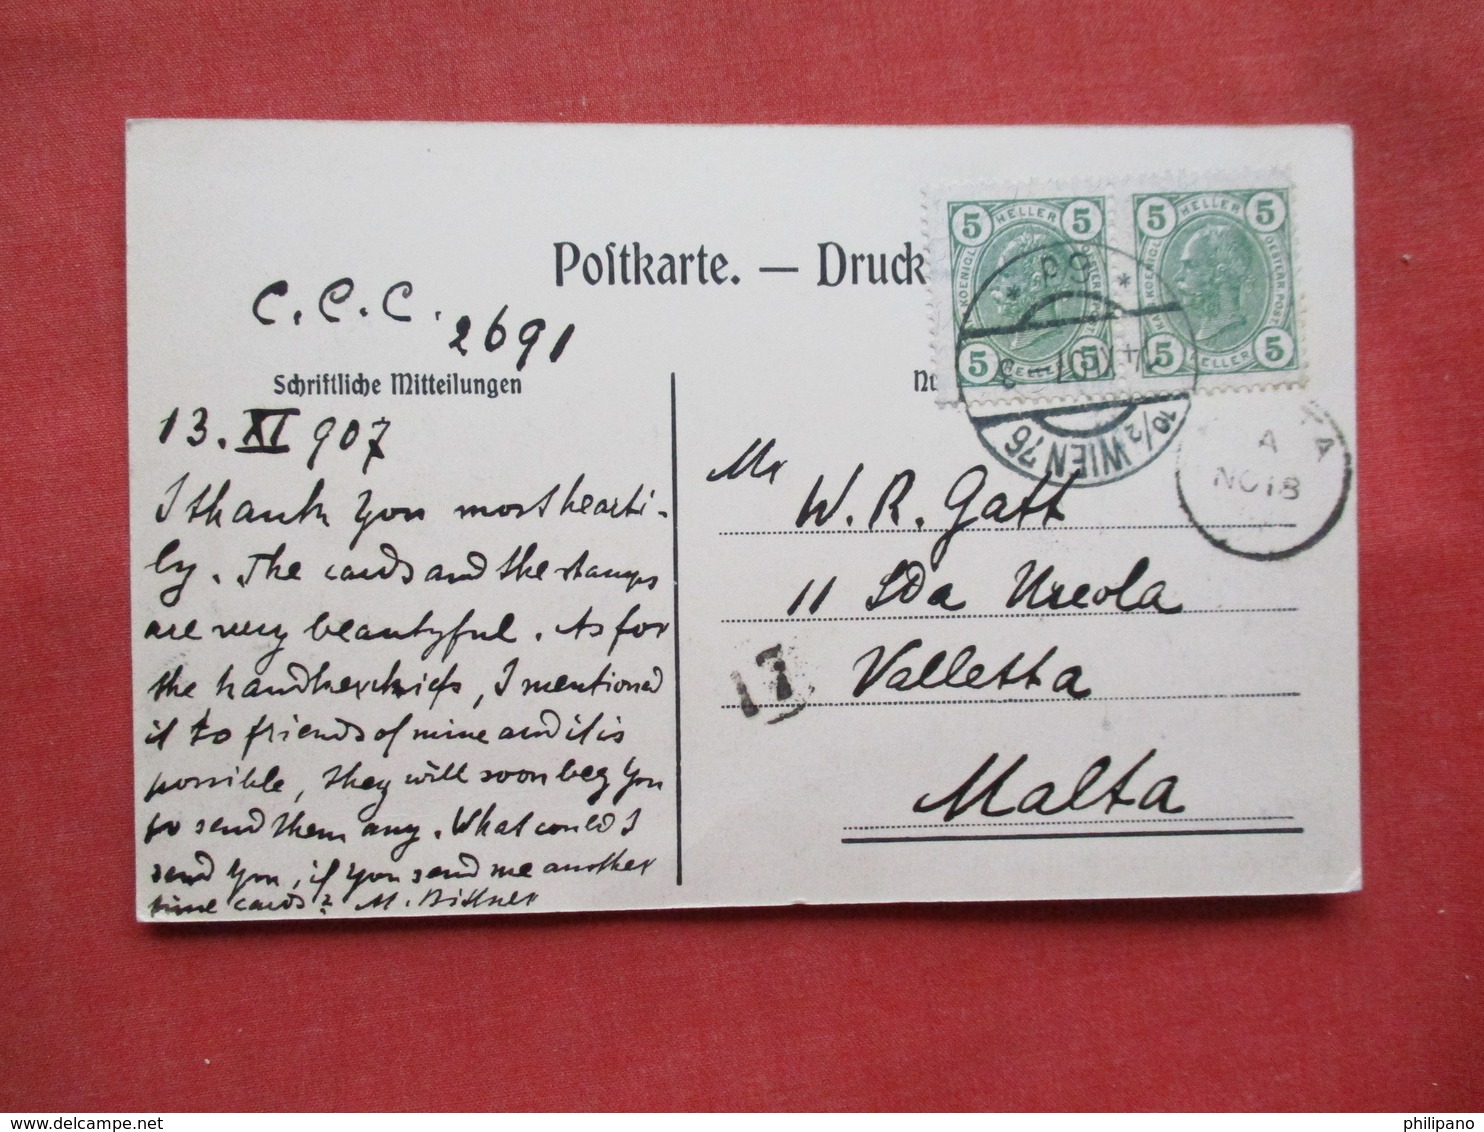 Postkarte. — Druck
C.C.C. 2691
Schriftliche Mitteilungen
13. XI 907
I thank you most hearti-
ly. The cards and the stamps
are very beautyful. As for
the handkerchiefs, I mentioned
it to friends of mine and it is
possible, they will soon beg you
to send them any. What could I
send you, if you send me another
nine cards? M. Bittner
5 HELLER 5
KAIS. KOENIGL. OESTERR. POST
5 HELLER 5
5 HELLER 5
KAIS. KOENIGL. OESTERR. POST
5 HELLER 5
* 9d *
14 XI 07
10/2 WIEN 76
TA
A
NO 18
Mr
W. R. Gatt
11 Sda Ursola
Valletta
Malta
17
philipano